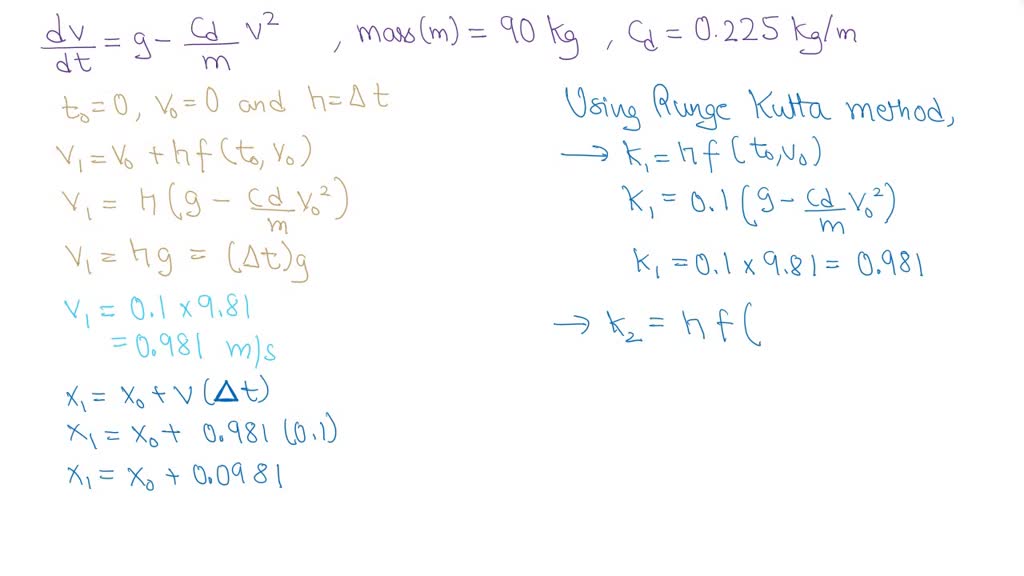 dv/dt = g - Cd/m v² , mass(m) = 90 kg , Cd = 0.225 kg/m
t₀=0, v₀=0 and h=Δt
v₁ = v₀ + hf(t₀, v₀)
v₁ = h(g - Cd/m v₀²)
v₁ = hg = (Δt)g
v₁ = 0.1 × 9.81
= 0.981 m/s
x₁ = x₀ + v(Δt)
x₁ = x₀ + 0.981 (0.1)
x₁ = x₀ + 0.0981
Using Runge Kutta method,
→ k₁ = hf(t₀,v₀)
k₁ = 0.1(g - Cd/m v₀²)
k₁ = 0.1 × 9.81 = 0.981
→ k₂ = hf(